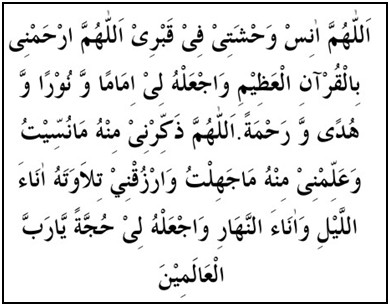 اَللّٰهُمَّ اٰنِسْ وَحْشَتِیْ فِیْ قَبْرِیْ اَللّٰهُمَّ ارْحَمْنِی
بِالْقُرْآنِ الْعَظِیْمِ وَاجْعَلْهُ لِیْ اِمَامًا وَّ نُوْرًا وَّ
هُدًی وَّ رَحْمَةً.اَللّٰهُمَّ ذَكِّرْنِیْ مِنْهُ مَانُسِّیْتُ
وَعَلِّمْنِیْ مِنْهُ مَاجَهِلْتُ وَارْزُقْنِیْ تِلاَوَتَهُ اٰنَاءَ
اللَّیْلِ وَاٰنَاءَ النَّهَارِ وَاجْعَلْهُ لِیْ حُجَّةً یَّارَبَّ
الْعَالَمِیْنَ